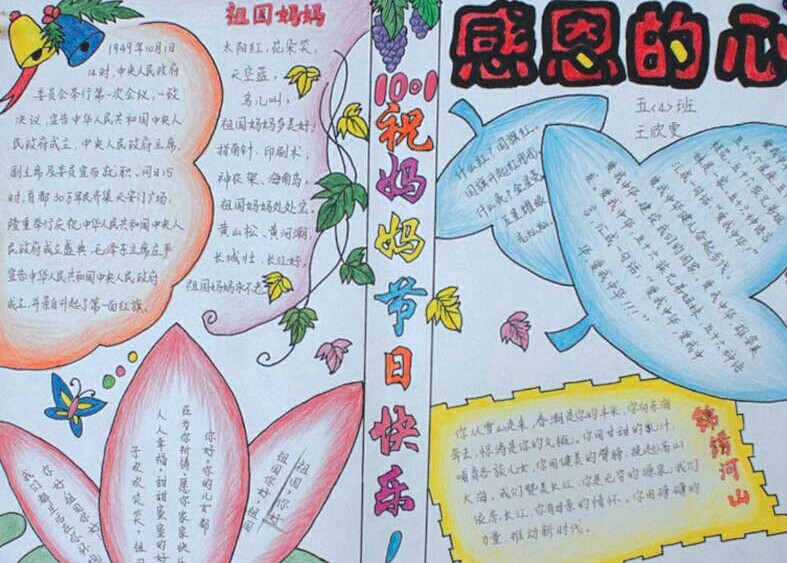 感恩的心
五<4>班
王欣雯
10·1
祝妈妈节日快乐!
1949年10月1日
14时,中央人民政府
委员会举行第一次会议,一致
决议,宣告中华人民共和国中央人
民政府成立,中央人民政府主席、
副主席及委员宣布就职,同日15
时,首都30万军民齐集天安门广场,
隆重举行庆祝中华人民共和国中央人
民政府成立盛典,毛泽东主席庄严
宣告中华人民共和国中央人民政府
成立,并亲自升起了第一面红旗。
祖国妈妈
太阳红,花朵笑,
天空蓝,
鸟儿叫,
祖国妈妈多美好!
指南针、印刷术,
神农架、海南岛,
祖国妈妈处处宝,
黄山松、黄河潮,
长城壮,长江好,
祖国妈妈永不老
什么红?国旗红,
国旗升起红彤彤,
什么黄?金星黄,
五星耀眼
爱我中华,建设我们的国家,
爱我中华
五十六种话
汇成一句话,爱我中华!
祖国,你好
祖国你好,祖国
你好,你的儿女都
在为你祈祷,愿你家家快乐
人人幸福,甜甜蜜蜜的好
子欢欢笑笑,祖国
我们都生活在你怀
锦绣河山
你从雪山走来,春潮是你的丰采,你向东海
奔去,惊涛是你的气概,你用甘甜的乳汁,
哺育各族儿女,你用健美的臂膀,挽起高山
大海,我们赞美长江,你是无穷的源泉;我们
依恋长江,你有母亲的情怀。你用磅礴的
力量,推动新时代。